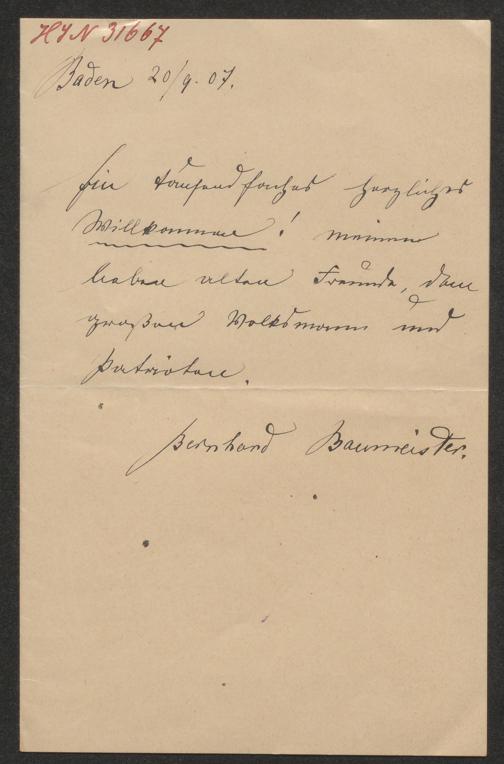 HJN 31667
Baden 20/9. 07.
Ein tausendfaches herzliches
Willkommen! meinem
lieben alten Freunde, dem
großen Volksmann und
Patrioten.
Bernhard Baumeister.